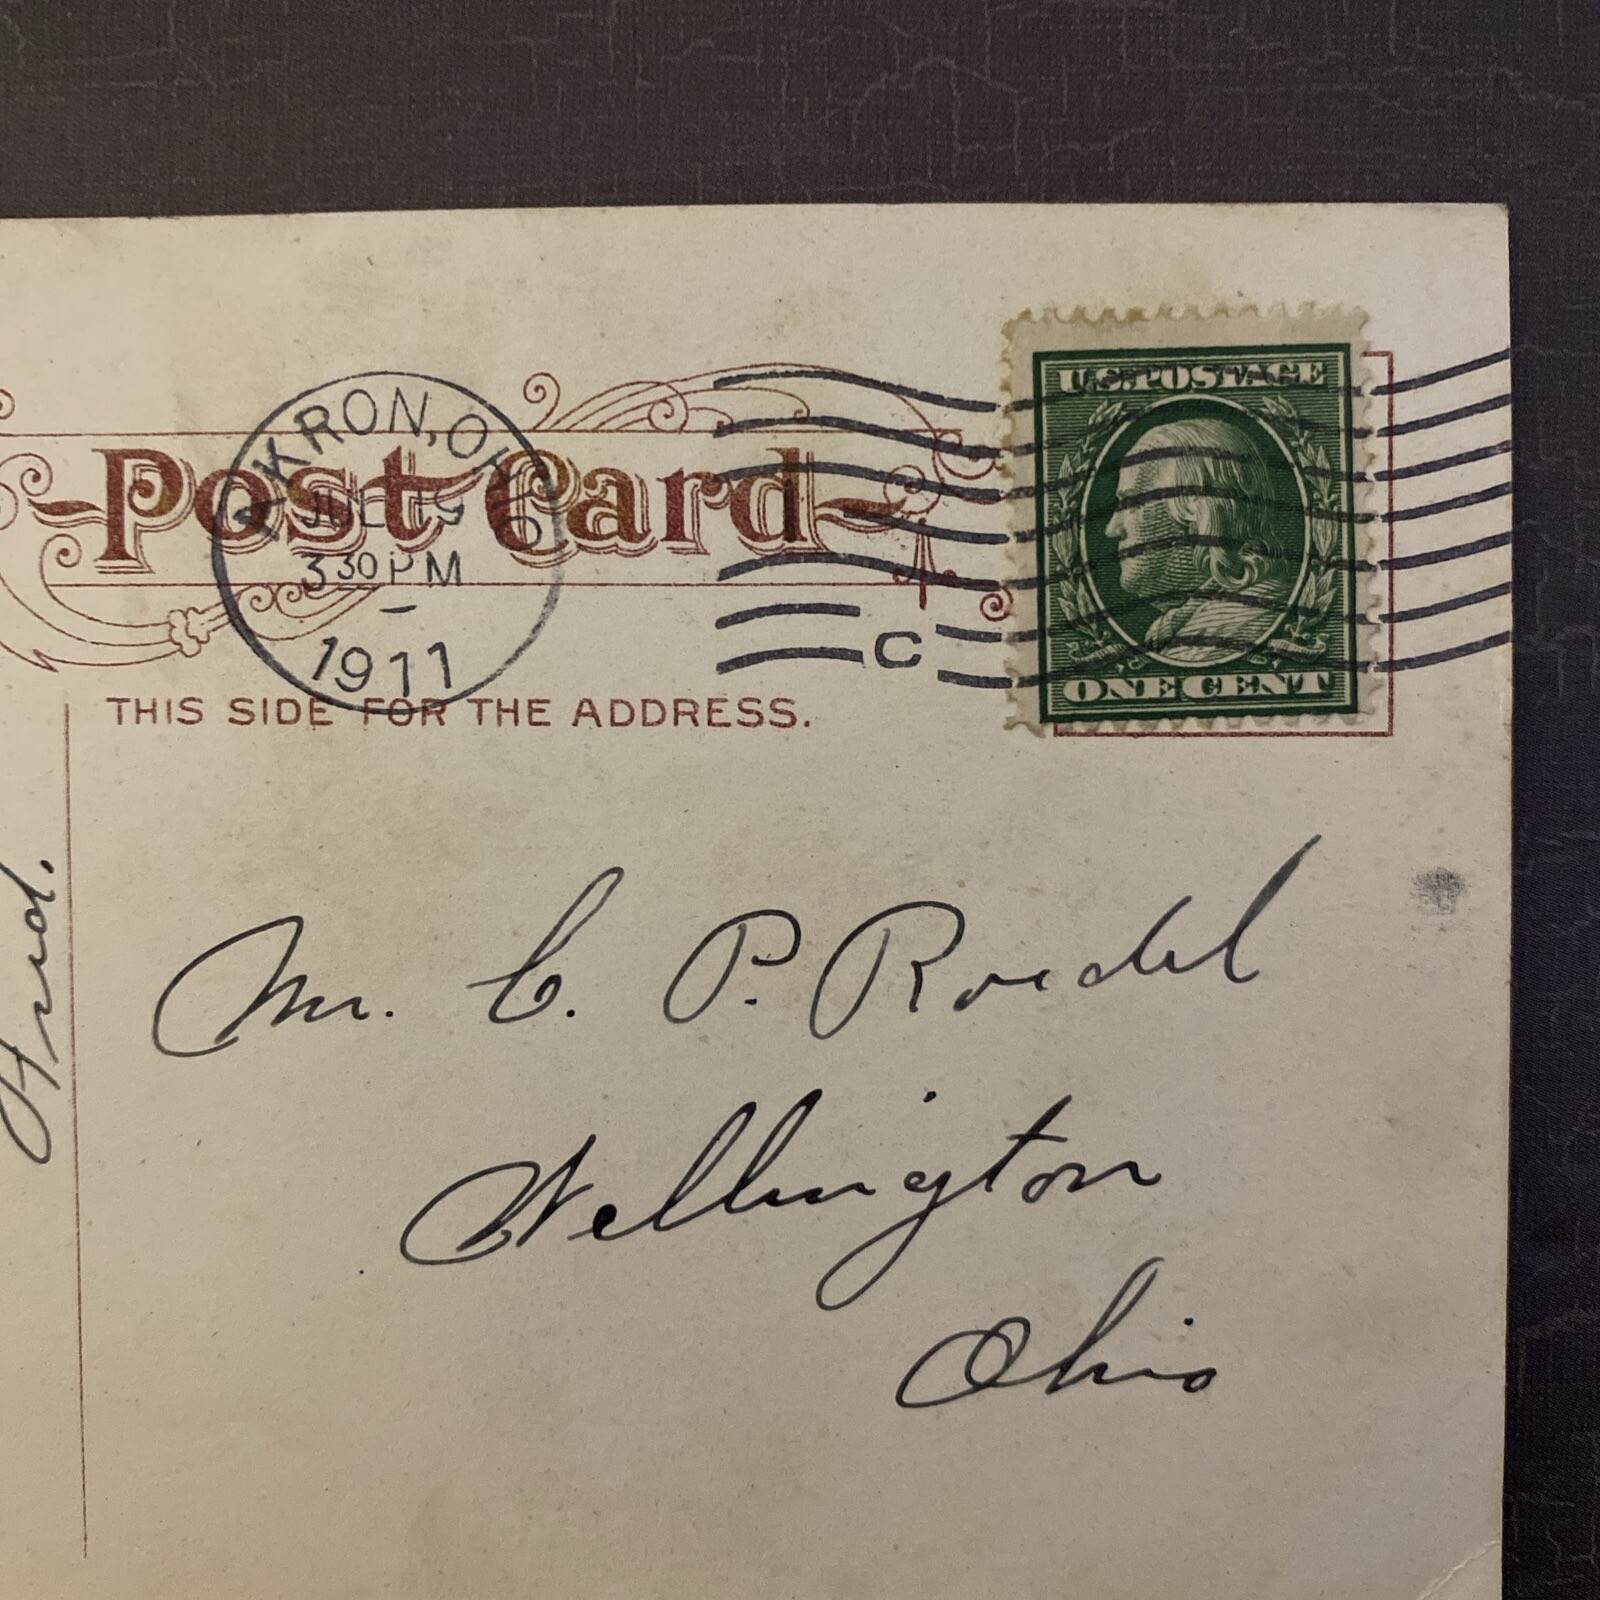 AKRON, OHIO
JUL 19
3 30 PM
1911
Post Card
C
U.S. POSTAGE
ONE CENT
THIS SIDE FOR THE ADDRESS.
Mr. C. P. Roedel
Wellington
Ohio